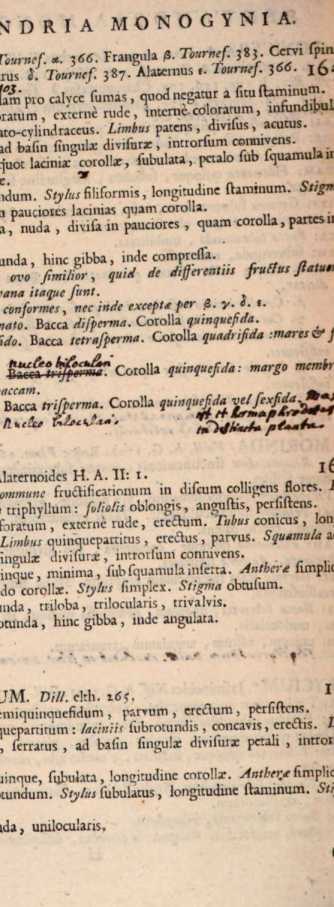 NDRIA MONOGYNIA.
Tournef. α. 366. Frangula β. Tournef. 383. Cervi spin
rus δ. Tournef. 387. Alaternus ε. Tournef. 366. 16
103.
lam pro calyce sumas, quod negatur a situ staminum.
oratum, externè rude, internè coloratum, infundibul
ato-cylindraceus. Limbus patens, divisus, acutus.
ad basin singulæ divisuræ, introrsum connivens.
quot laciniæ corollæ, subulata, petalo sub squamula in
æ.
ndum. Stylus filiformis, longitudine staminum. Stigm
n pauciores lacinias quam corolla.
a, nuda, divisa in pauciores, quam corolla, partes in
unda, hinc gibba, inde compressa.
ovo similior, quid de differentiis fructus statu
vana itaque sunt.
conformes, nec inde exceptæ per β. γ. δ. ε.
nato. Bacca disperma. Corolla quinquefida.
fido. Bacca tetrasperma. Corolla quadrifida :mares & f
nucleo biloculari
Bacca trisperma. Corolla quinquefida: margo membr
baccam.
Bacca trisperma. Corolla quinquefida vel sexfida. Mas
Nucleo biloculari. et Hermaphroditus
in distincta planta.
16
Alaternoides H. A. II: 1.
commune fructificationum in discum colligens flores.
triphyllum: foliolis oblongis, angustis, persistens.
foratum, externè rude, erectum. Tubus conicus, lon
Limbus quinquepartitus, erectus, parvus. Squamula a
singulæ divisuræ, introrsum connivens.
inque, minima, sub squamula inserta. Antheræ simplic
do corollæ. Stylus simplex. Stigma obtusum.
unda, triloba, trilocularis, trivalvis.
otunda, hinc gibba, inde angulata.
1
UM. Dill. elth. 265.
emiquinquefidum, parvum, erectum, persistens.
quepartitum: laciniis subrotundis, concavis, erectis.
, serratus, ad basin singulæ divisuræ petali, intror
uinque, subulata, longitudine corollæ. Antheræ simplic
otundum. Stylus subulatus, longitudine staminum. Sti
nda, unilocularis,